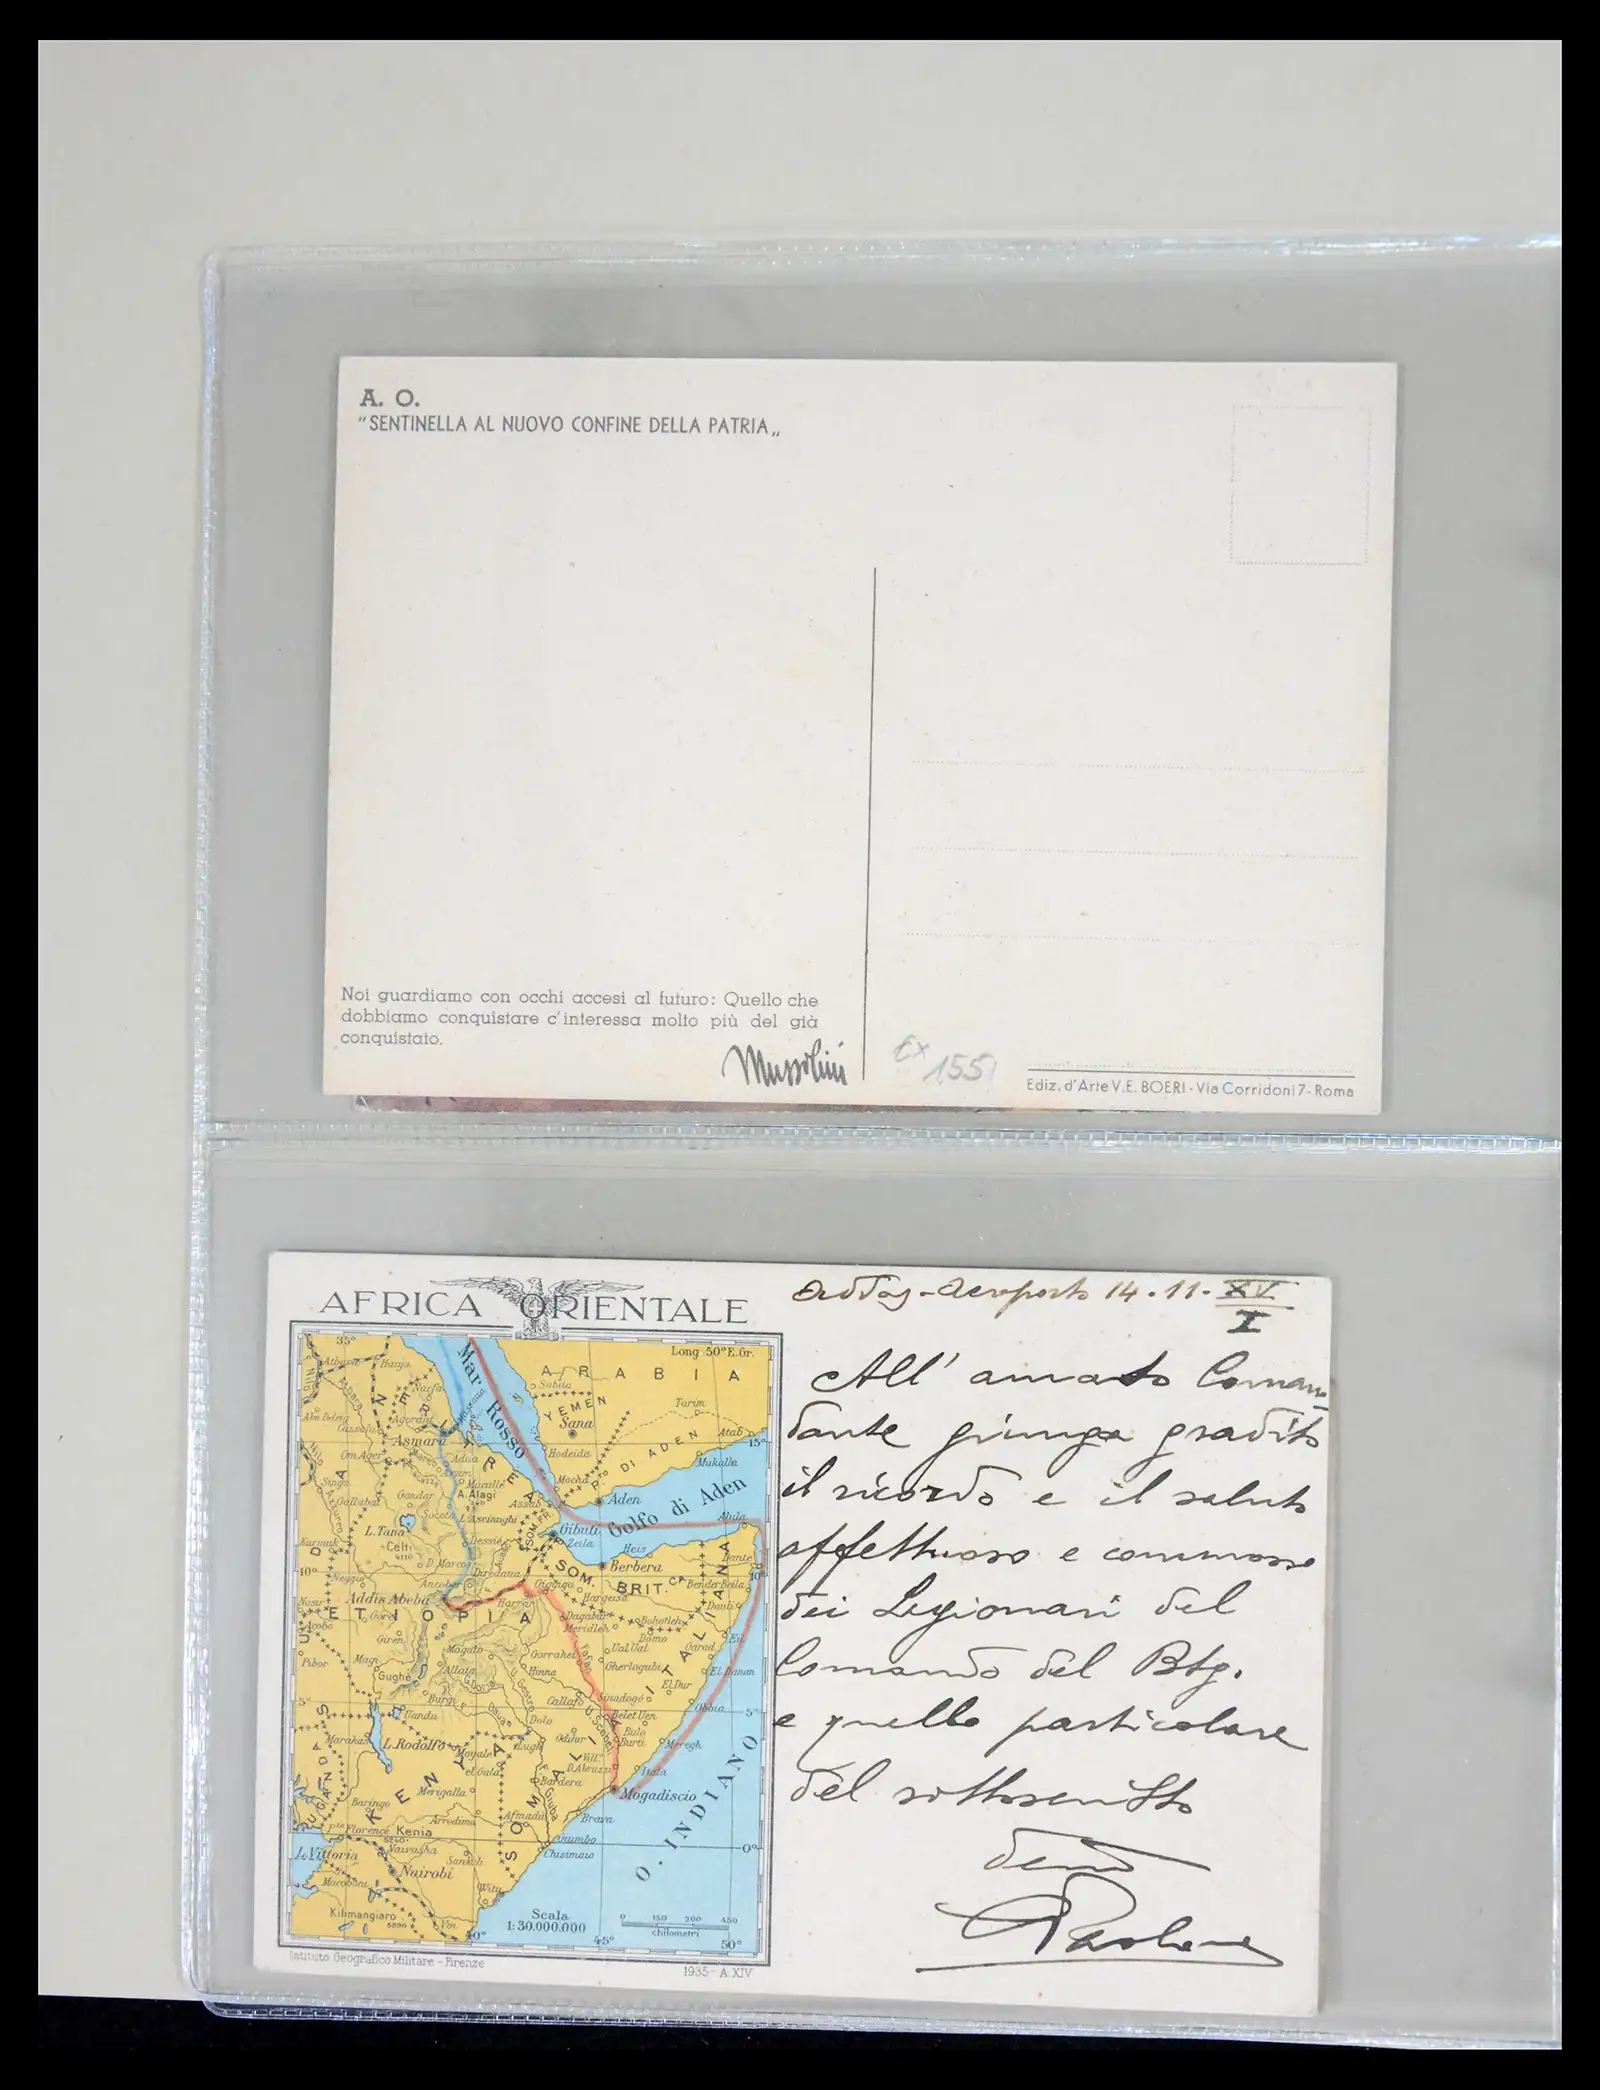 A. O.
"SENTINELLA AL NUOVO CONFINE DELLA PATRIA„
Noi guardiamo con occhi accesi al futuro: Quello che
dobbiamo conquistare c'interessa molto più del già
conquistato.
Mussolini
Ex 155
Ediz. d'Arte V. E. BOERI - Via Corridoni 7 - Roma
AFRICA ORIENTALE
35°
Long. 50° E. Gr.
Mar Rosso
ARABIA
YEMEN
Sana
Tarim
Atab
15°
Asmara
ERITREA
Hodeida
Mukalla
Mocha
Pto DI ADEN
Gondar
A. Alagi
Assab
Aden
Golfo di Aden
L. Tana
Gibuti
Zeila
Alula
Heis
Berbera
SOM. BRIT.CA
Dante
10°
Addis Abeba
Harrar
Giggiga
Hargeisa
Bender Beila
ETIOPIA
Giren
Magalo
Gorrahei
Ual Ual
Gherlogubi
Eil
Gughé
Allata
Hinna
El Dur
Burgi
Callafo
Sinadogò
Obbia
5°
Dolo
Belet Uen
SOMALIA ITALIANA
L. Rodolfo
Moyale
Lugh
Oddur
Bulo Burti
Meregh
Bardera
Itala
Mogadiscio
UGANDA
KENYA
Merigalla
Baringo
Afmadu
Brava
O. INDIANO
Kenia
0°
L. Vittoria
Naivasha
Chisimaio
Nairobi
Kilimangiaro
Voi
Scala
1:30.000.000
0 150 300 450
chilometri
40° 45° 50°
Istituto Geografico Militare - Firenze
1935 - A. XIV
Aeroporto 14.11. XV
I
All' amato Coman-
dante giunga gradito
il ricordo e il saluto
affettuoso e commosso
dei Legionari del
Comando del Btg.
e quello particolare
del sottoscritto